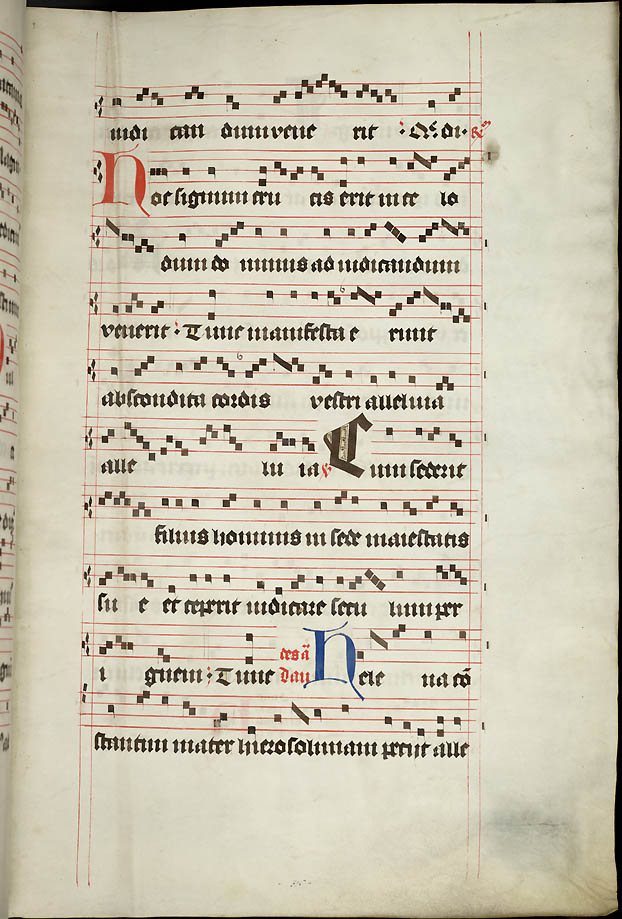 iudi can dum vene rit · Gl'di·
Hoc signum cru cis erit in ce lo
dum do minus ad iudicandum
venerit · Tunc manifesta e runt
abscondita cordis vestri alleluia
alle lu ia ℣ Cum sederit
filius hominis in sede maiestatis
su e et ceperit iudicare secu lum per
i gnem · Tunc
Hele na cō
stantini mater hierosolimam peciit alle